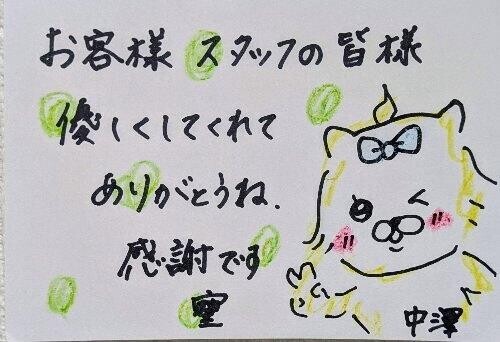 お客様 スタッフの皆様
優しくしてくれて
ありがとうね.
感謝です
中澤